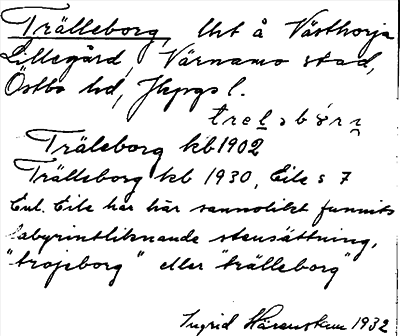 Trälleborg, Urt å Västhorja
Lillegård, Värnamo stad,
Östbo hd, Jkpgs l.
trelsbörn
Träleborg kb 1902
Trälleborg kb 1930, Eile s 7
Enl. Eile har här sannolikt funnits
labyrintliknande stensättning,
"trojeborg" eller "trälleborg"
Ingrid 1932